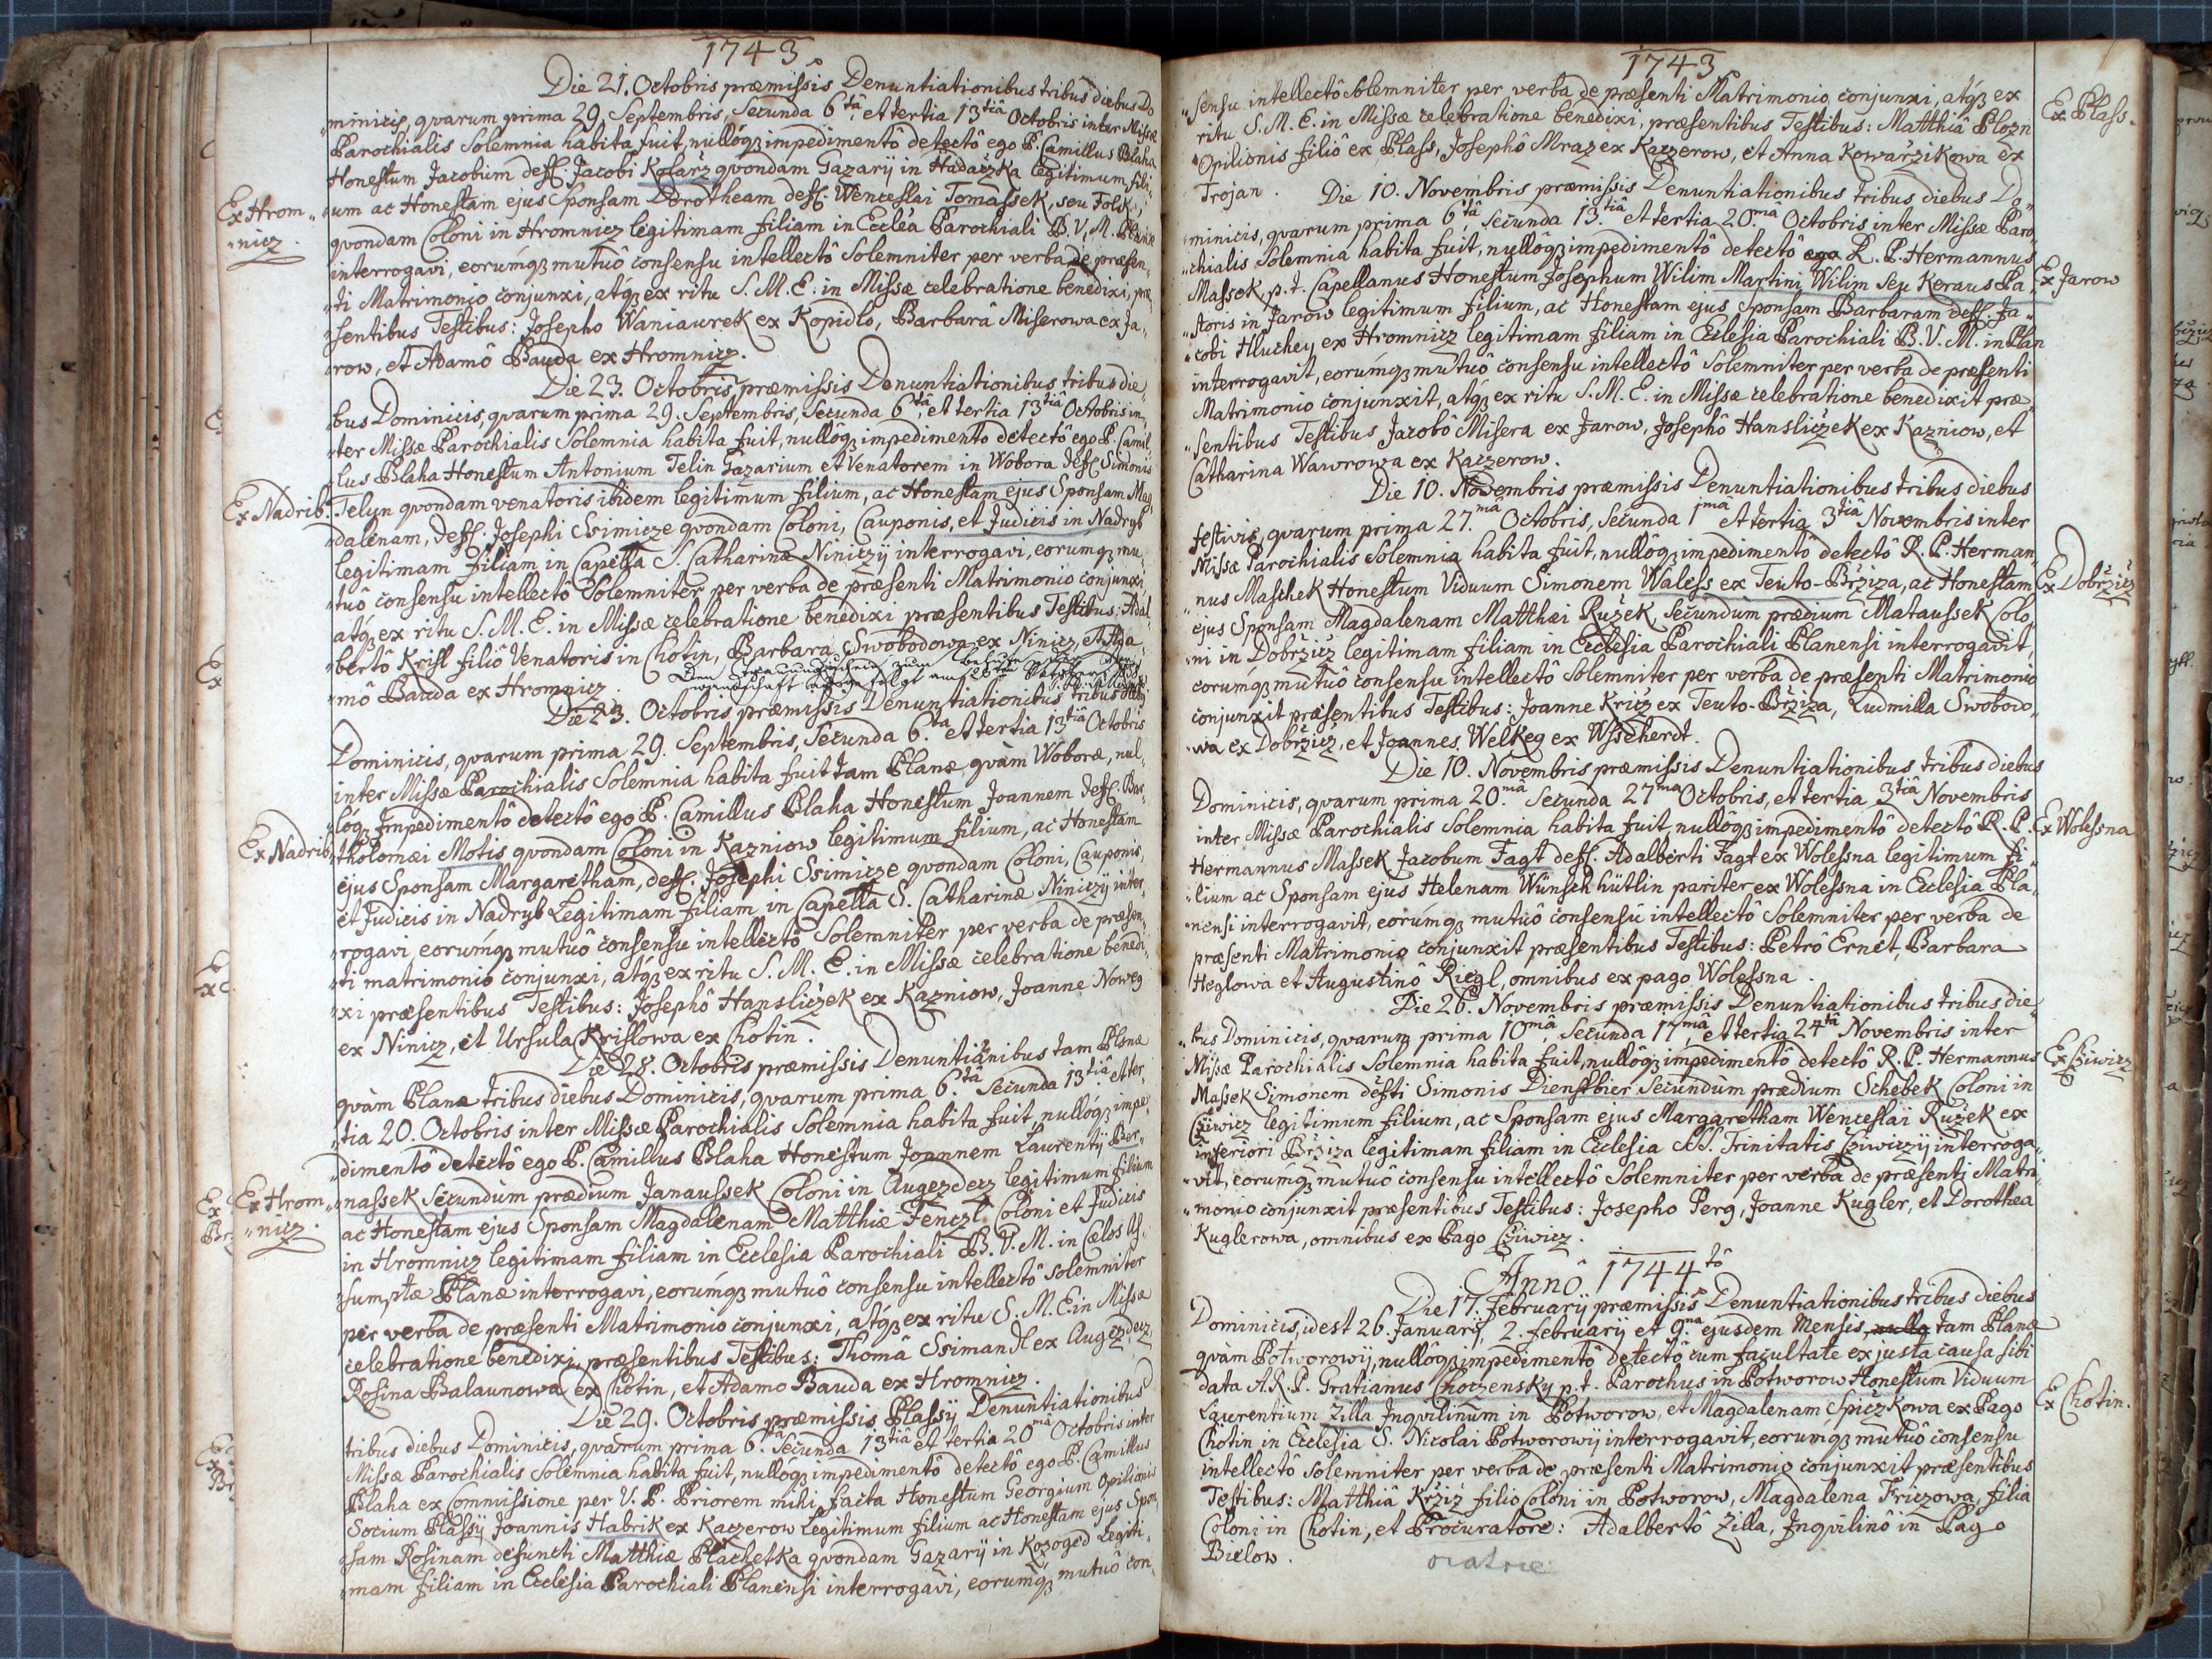 1743
Die 21. Octobris præmissis Denuntiationibus tribus diebus Do
minicis, qvarum prima 29. Septembris, Secunda 6tâ, et tertia 13tiâ Octobris inter Missæ
Parochialis Solemnia habita fuit, nullóq3 impedimentô detectô ego P. Camillus Blaha
Honestum Jacobum deff. Jacobi Kolarž qvondam Gazarij in Hadačzka legitimum fili
Ex Hrom
um ac Honestam ejus Sponsam Dorotheam deff. Wenceslai Tomassek, seu Folk,
nicz.
qvondam Coloni in Hromnicz legitimam filiam in Ecclêa Parochiali B. V. M. Planæ
interrogavi, eorúmq3 mutuô consensu intellectô Solemniter per verba de præsen
ti Matrimonio conjunxi, atq3 ex ritu S. M. E. in Missæ celebratione benedixi, præ
sentibus Testibus: Josepho Waniaurek ex Kopidlo, Barbarâ Miserowa ex Ja
row, et Adamô Bauda ex Hromnicz.
Die 23. Octobris præmissis Denuntiationibus tribus die
bus Dominicis, qvarum prima 29. Septembris, Secunda 6tâ, et tertia 13tiâ Octobris in
ter Missæ Parochialis Solemnia habita fuit, nullôq3 impedimentô detectô ego P. Camil
lus Blaha Honestum Antonium Telin Gazarium et Venatorem in Wobora deff. Simonis
Ex Nadrib.
Telyn qvondam venatoris ibidem legitimum filium, ac Honestam ejus Sponsam Mag
dalenam, deff. Josephi Ssimicze qvondam Coloni, Cauponis, et Judicis in Nadryb
legitimam filiam in Capella S. Catharinæ Niniczij interrogavi, eorumq3 mu
tuô consensu intellectô Solemniter per verba de præsenti Matrimonio conjunxi
atq3 ex ritu S. M. E. in Missæ celebratione benedixi præsentibus Testibus: Adal
bertô Krisl filiô Venatoris in Chotin, Barbara Swobodowa ex Ninicz, et Ada
Den Trauungsschein zum Behufe
mô Bauda ex Hromnicz.
Die 23. Octobris præmissis Denuntiationibus tribus diebus
Dominicis, qvarum prima 29. Septembris, Secunda 6ta et tertia 13tiâ Octobris
inter Missæ Parochialis Solemnia habita fuit tam Planæ, qvàm Woboræ, nul
lôq3 Impedimentô detectô ego P. Camillus Blaha Honestum Joannem deff. Bar
Ex Nadrib
tholomæi Motis qvondam Coloni in Kazniow legitimum filium, ac Honestam
ejus Sponsam Margaretham, deff. Josephi Ssimicze qvondam Coloni, Cauponis,
et Judicis in Nadryb Legitimam filiam in Capella S. Catharinæ Niniczij inter
rogavi, eorumq3 mutuô consensu intellectô Solemniter per verba de præsen
ti matrimonio conjunxi, atq3 ex ritu S. M. E. in Missæ celebratione benedi
xi præsentibus Testibus: Josephô Hansliczek ex Kazniow, Joanne Noweg
ex Ninicz, et Ursula Krislowa ex Chotin.
Die 28. Octobris præmissis Denuntianibus tam Plsnæ
qvàm Planæ tribus diebus Dominicis, qvarum prima 6tâ Secunda 13tiâ et ter
tia 20. Octobris inter Missæ Parochialis Solemnia habita fuit, nullóq3 impe
dimentô detectô ego P. Camillus Blaha Honestum Joannem Laurentij Ber
Ex Hrom
nassek Secundùm prædium Janaussek Coloni in Augezdecz legitimum filium
nicz.
ac Honestam ejus Sponsam Magdalenam Matthiæ Fenczl Coloni et Judicis
in Hromnicz legitimam filiam in Ecclesia Parochiali B. V. M. in Cælos As
sumptæ Planæ interrogavi, eorúmq3 mutuô consensu intellectô solemniter
per verba de præsenti Matrimonio conjunxi, atq3 ex ritu S. M. E. in Missæ
celebratione benedixi præsentibus Testibus: Thomâ Ssimandl ex Augezdecz,
Rosina Balaunowa ex Chotin, et Adamo Bauda ex Hromnicz.
Die 29. Octobris præmissis Plassij Denuntiationibus
tribus diebus Dominicis, qvarum prima 6tâ Secunda 13tiâ et tertia 20mâ Octobris inter
Missæ Parochialis Solemnia habita fuit, nullóq3 impedimentô detectô ego P. Camillus
Blaha ex Commissione per V. P. Priorem mihi facta Honestum Georgium Opilionis
Socium Plassij Joannis Habrik ex Kaczerow Legitimum filium ac Honestam ejus Spon
sam Rosinam defuncti Matthiæ Plachetka qvondam Gazarij in Kozoged Legiti
mam filiam in Ecclesia Parochiali Planensi interrogavi, eorumq3 mutuô con
1743
sensu intellectô Solemniter per verba de præsenti Matrimonio conjunxi, atq3 ex
Ex Plass.
ritu S. M. E. in Missæ celebratione benedixi, præsentibus Testibus: Matthiâ Plozn
Opilionis filiô ex Plass, Josephô Mraz ex Kaczerow, et Anna Kowařzikowa ex
Trojan. Die 10. Novembris præmissis Denuntiationibus tribus diebus Do
minicis, qvarum prima 6tâ, Secunda 13tiâ et tertia 20mâ Octobris inter Missæ Paro
chialis Solemnia habita fuit, nullôq3 impedimentô detectô ego R. P. Hermannus
Massek, p. t. Capellanus Honestum Josephum Wilim Martini Wilim seu Keraus Pa
Ex Jarow
storis in Jarow legitimum filium, ac Honestam ejus Sponsam Barbaram deff. Ja
cobi Hluchey ex Hromnicz legitimam filiam in Ecclesia Parochiali B. V. M. in Plan
interrogavit, eorúmq3 mutuô consensu intellectô Solemniter per verba de præsenti
Matrimonio conjunxit, atq3 ex ritu S. M. E. in Missæ celebratione benedixit præ
sentibus Testibus Jacobô Misera ex Jarow, Josephô Hansliczek ex Kazniow, et
Catharina Wawrowa ex Kaczerow.
Die 10. Novembris præmissis Denuntiationibus tribus diebus
festivis, qvarum prima 27mâ Octobris, Secunda 1mâ et tertia 3tiâ Novembris inter
Missæ Parochialis Solemnia habita fuit, nullôq3 impedimentô detectô R. P. Herman
nus Maschek Honestum Viduum Simonem Waless ex Teuto-Bržiza, ac Honestam
Ex Dobržicz
ejus Sponsam Magdalenam Matthæi Ružek, Secundùm prædium Mataussek Colo
ni in Dobržicz legitimam filiam in Ecclesia Parochiali Planensi interrogavit,
eorúmq3 mutuô consensu intellectô Solemniter per verba de præsenti Matrimonio
conjunxit præsentibus Testibus: Joanne Kricz ex Teuto-Bržiza, Ludmilla Swobodo
wa ex Dobržicz, et Joannes Welkeg ex Wscherdt.
Die 10. Novembris præmissis Denuntiationibus tribus diebus
Dominicis, qvarum prima 20mâ Secunda 27ma Octobris, et tertia 3tiâ Novembris
inter Missæ Parochialis Solemnia habita fuit, nullôq3 impedimentô detectô R. P.
Ex Wolessna
Hermannus Massek Jacobum Fagt deff. Adalberti Fagt ex Wolessna legitimum fi
lium ac Sponsam ejus Helenam Wünschhütlin pariter ex Wolessna in Ecclesia Pla
nensi interrogavit, eorúmq3 mutuô consensu intellectô Solemniter per verba de
præsenti Matrimonio conjunxit præsentibus Testibus: Petrô Ernet, Barbara
Heglowa et Augustinô Riegl, omnibus ex pago Wolessna.
Die 26. Novembris præmissis Denuntiationibus tribus die
bus Dominicis, qvarum prima 10mâ, Secunda 17mâ, et tertia 24tâ Novembris inter
Missæ Parochialis Solemnia habita fuit, nullôq3 impedimentô detectô R. P. Hermannus
Ex Cziwicz
Massek Simonem defti Simonis Dienstbier Secundùm prædium Schebek Coloni in
Cziwicz legitimum filium, ac Sponsam ejus Margaretham Wenceslai Ružek ex
inferiori Bržiza legitimam filiam in Ecclesia SS. Trinitatis Cziwiczij interroga
vit, eorúmq3 mutuô consensu intellectô Solemniter per verba de præsenti Matri
monio conjunxit præsentibus Testibus: Josepho Perg, Joanne Kugler, et Dorothea
Kuglerowa, omnibus ex Pago Cziwicz.
Annô 1744tô
Die 17. Februarij præmissis Denuntiationibus tribus diebus
Dominicis, id est 26. Januarij, 2. februarij et 9na ejusdem Mensis, nullo tam Planæ
qvàm Potworowij, nullôq3 impedimentô detectô cum facultate ex justa causa sibi
data A. R. P. Gratianus Choczensky p. t. Parochus in Potworow Honestum Viduum
Ex Chotin.
Laurentium Zilla Inqvilinum in Potworow, et Magdalenam Spiczkowa ex Pago
Chotin in Ecclesia S. Nicolai Potworowij interrogavit, eorúmq3 mutuô consensu
intellectô solemniter per verba de præsenti Matrimonio conjunxit præsentibus
Testibus: Matthiâ Křziž filio Coloni in Potworow, Magdalena Friczowa, filia
Coloni in Chotin, et Procuratore: Adalbertô Zilla, Inqvilinô in Pago
Bielow.